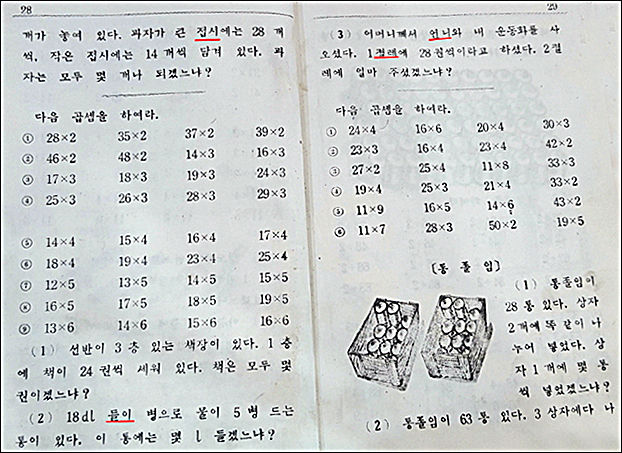 28
개가 놓여 있다. 과자가 큰 접시에는 28 개
씩, 작은 접시에는 14개씩 담겨 있다. 과
자는 모두 몇 개나 되겠느냐?
다음 곱셈을 하여라.
① 28×2 35×2 37×2 39×2
② 46×2 48×2 14×3 16×3
③ 17×3 18×3 19×3 24×3
④ 25×3 26×3 28×3 29×3
⑤ 14×4 15×4 16×4 17×4
⑥ 18×4 19×4 23×4 25×4
⑦ 12×5 13×5 14×5 15×5
⑧ 16×5 17×5 18×5 19×5
⑨ 13×6 14×6 15×6 16×6
(1) 선반이 3 층 있는 책장이 있다. 1 층
에 책이 24 권씩 세워 있다. 책은 모두 몇
권이겠느냐?
(2) 18dl 들이 병으로 물이 5 병 드는
통이 있다. 이 통에는 몇 l 들겠느냐?
29
(3) 어머니께서 언니와 내 운동화를 사
오셨다. 1켤레에 28 권씩이라고 하셨다. 2켤
레에 얼마 주셨겠느냐?
다음 곱셈을 하여라.
① 24×4 16×6 20×4 30×3
② 23×3 16×4 23×4 42×2
③ 27×2 25×4 11×8 33×3
④ 19×4 25×3 21×4 33×2
⑤ 11×9 16×5 14×6 43×2
⑥ 11×7 28×3 50×2 19×5
[통 졸 임]
(1) 통졸임이
28 통 있다. 상자
2개에 똑 같이 나
누어 넣었다. 상
자 1 개에 몇 통
씩 넣었겠느냐?
(2) 통졸임이 63 통 있다. 3 상자에다 나